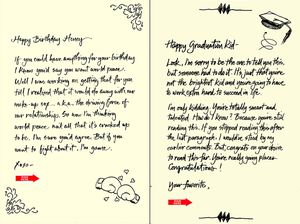 Happy Birthday Honey
If you could have anything for your birthday
I know you'd say you want world peace.
Well I was working on getting that for you
till I realized that it would do away with our
make-up sex... a.k.a. the driving force of
our relationship. So now I'm thinking
world peace, not all that it's cracked up
to be. I'm sure you'd agree. But if you
want to fight about it, I'm game.
XOXO-
Happy Graduation Kid-
Look, I'm sorry to be the one to tell you this,
but someone had to do it. It's just that you're
not the brightest kid and you're going to have
to work extra hard to succeed in life.
I'm only kidding. You're totally smart and
talented. How do I know? Because you're still
reading this. If you stopped reading this after
the last paragraph, I would've stood by my
earlier comments. But, congrats on your desire
to read this far. You're really going places-
Congratulations-!
Your favorite,